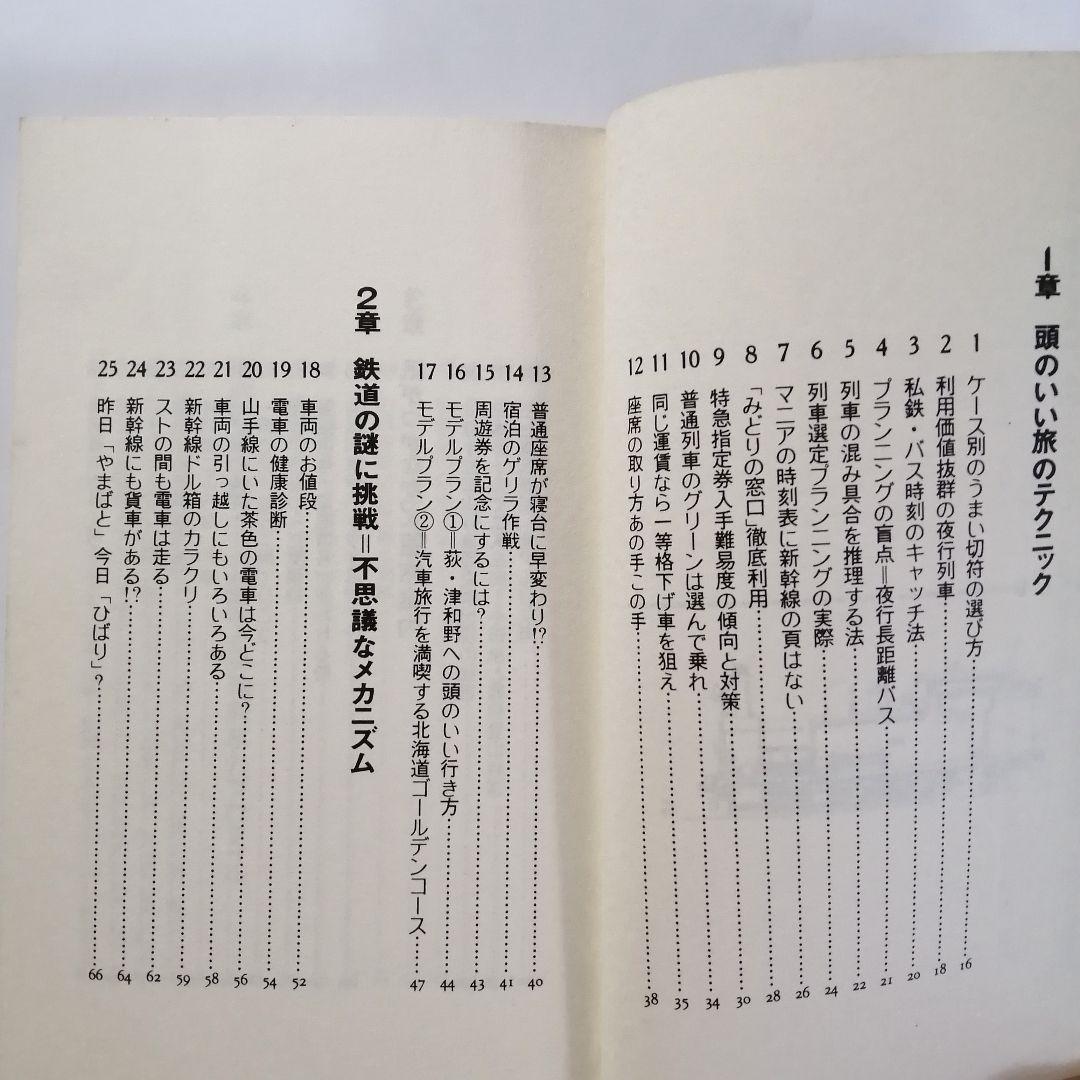 1章 頭のいい旅のテクニック
1 ケース別のうまい切符の選び方……16
2 利用価値抜群の夜行列車……18
3 私鉄・バス時刻のキャッチ法……20
4 プランニングの盲点＝夜行長距離バス……21
5 列車の混み具合を推理する法……22
6 列車選定プランニングの実際……24
7 マニアの時刻表に新幹線の頁はない……26
8 「みどりの窓口」徹底利用……28
9 特急指定券入手難易度の傾向と対策……30
10 普通列車のグリーンは選んで乗れ……34
11 同じ運賃なら一等格下げ車を狙え……35
12 座席の取り方あの手この手……38
13 普通座席が寝台に早変わり!?……40
14 宿泊のゲリラ作戦……41
15 周遊券を記念にするには?……43
16 モデルプラン①＝荻・津和野への頭のいい行き方……44
17 モデルプラン②＝汽車旅行を満喫する北海道ゴールデンコース……47
2章 鉄道の謎に挑戦＝不思議なメカニズム
18 車両のお値段……52
19 電車の健康診断……54
20 山手線にいた茶色の電車は今どこに?……56
21 車両の引っ越しにもいろいろある……58
22 新幹線ドル箱のカラクリ……59
23 ストの間も電車は走る……62
24 新幹線にも貨車がある!?……64
25 昨日「やまばと」今日「ひばり」?……66